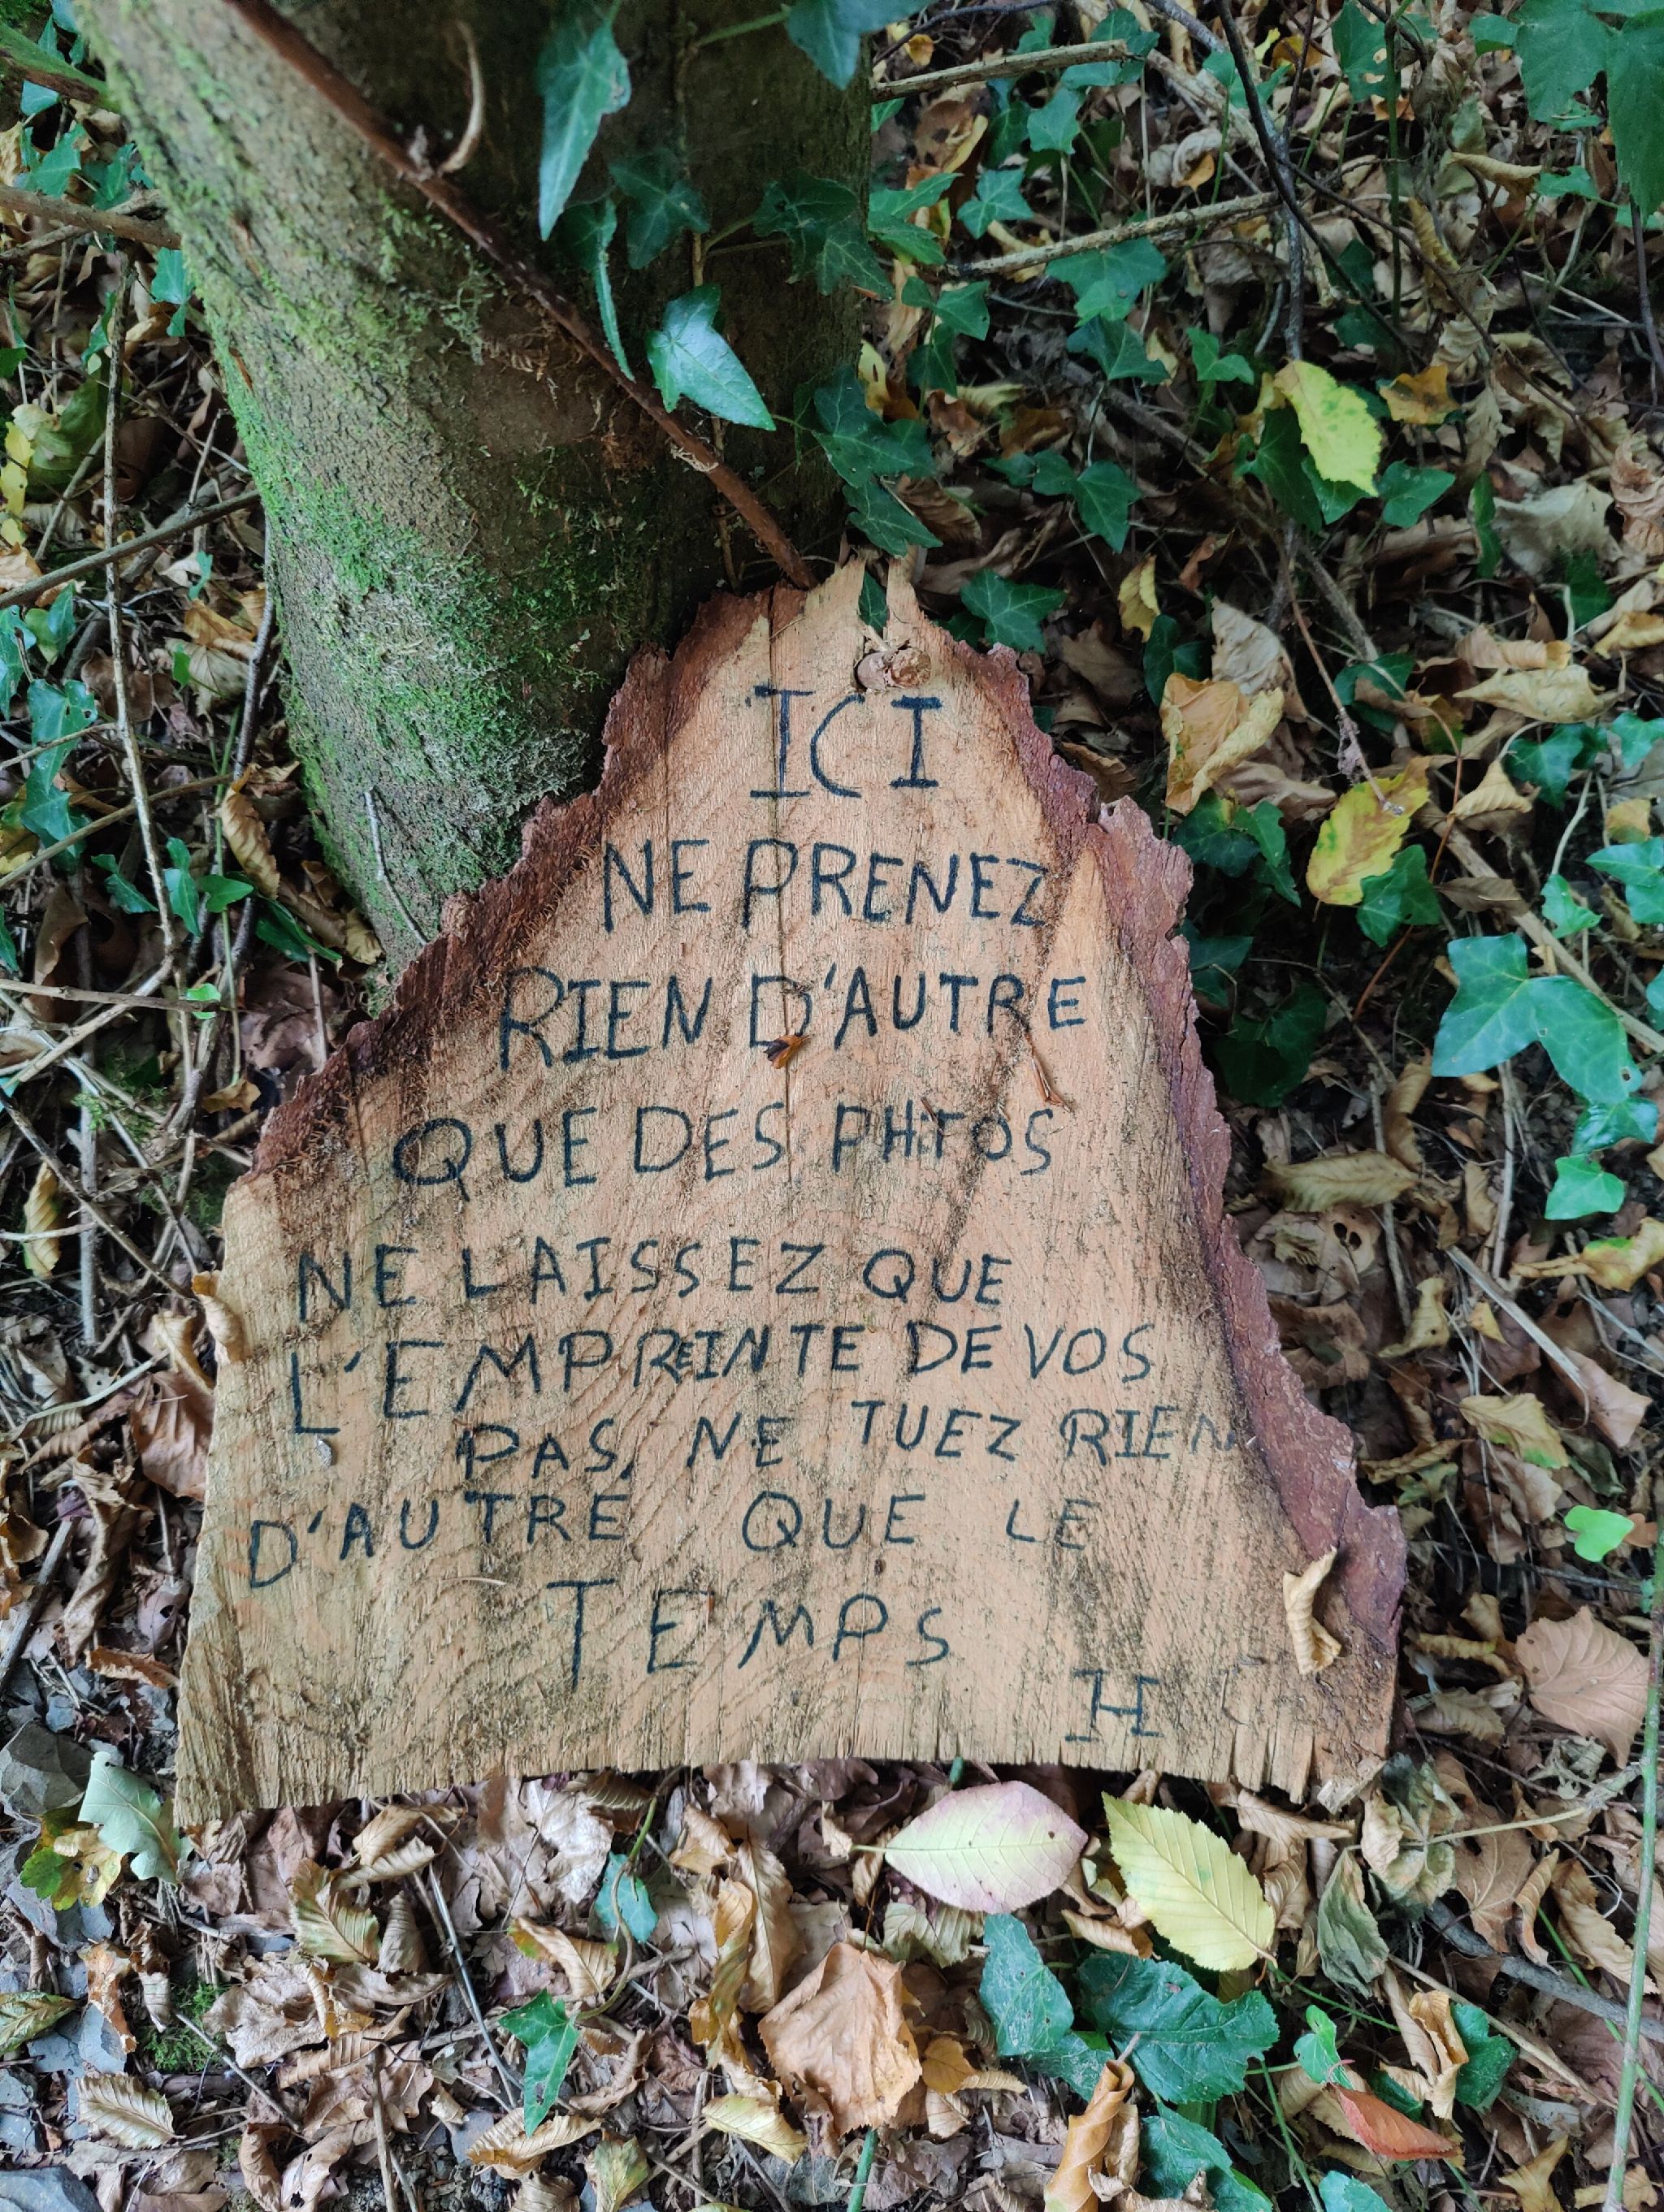 ICI
NE PRENEZ
RIEN D'AUTRE
QUE DES PHTOS
NE LAISSEZ QUE
L'EMPREINTE DE VOS
PAS, NE TUEZ RIEN
D'AUTRE QUE LE
TEMPS
H